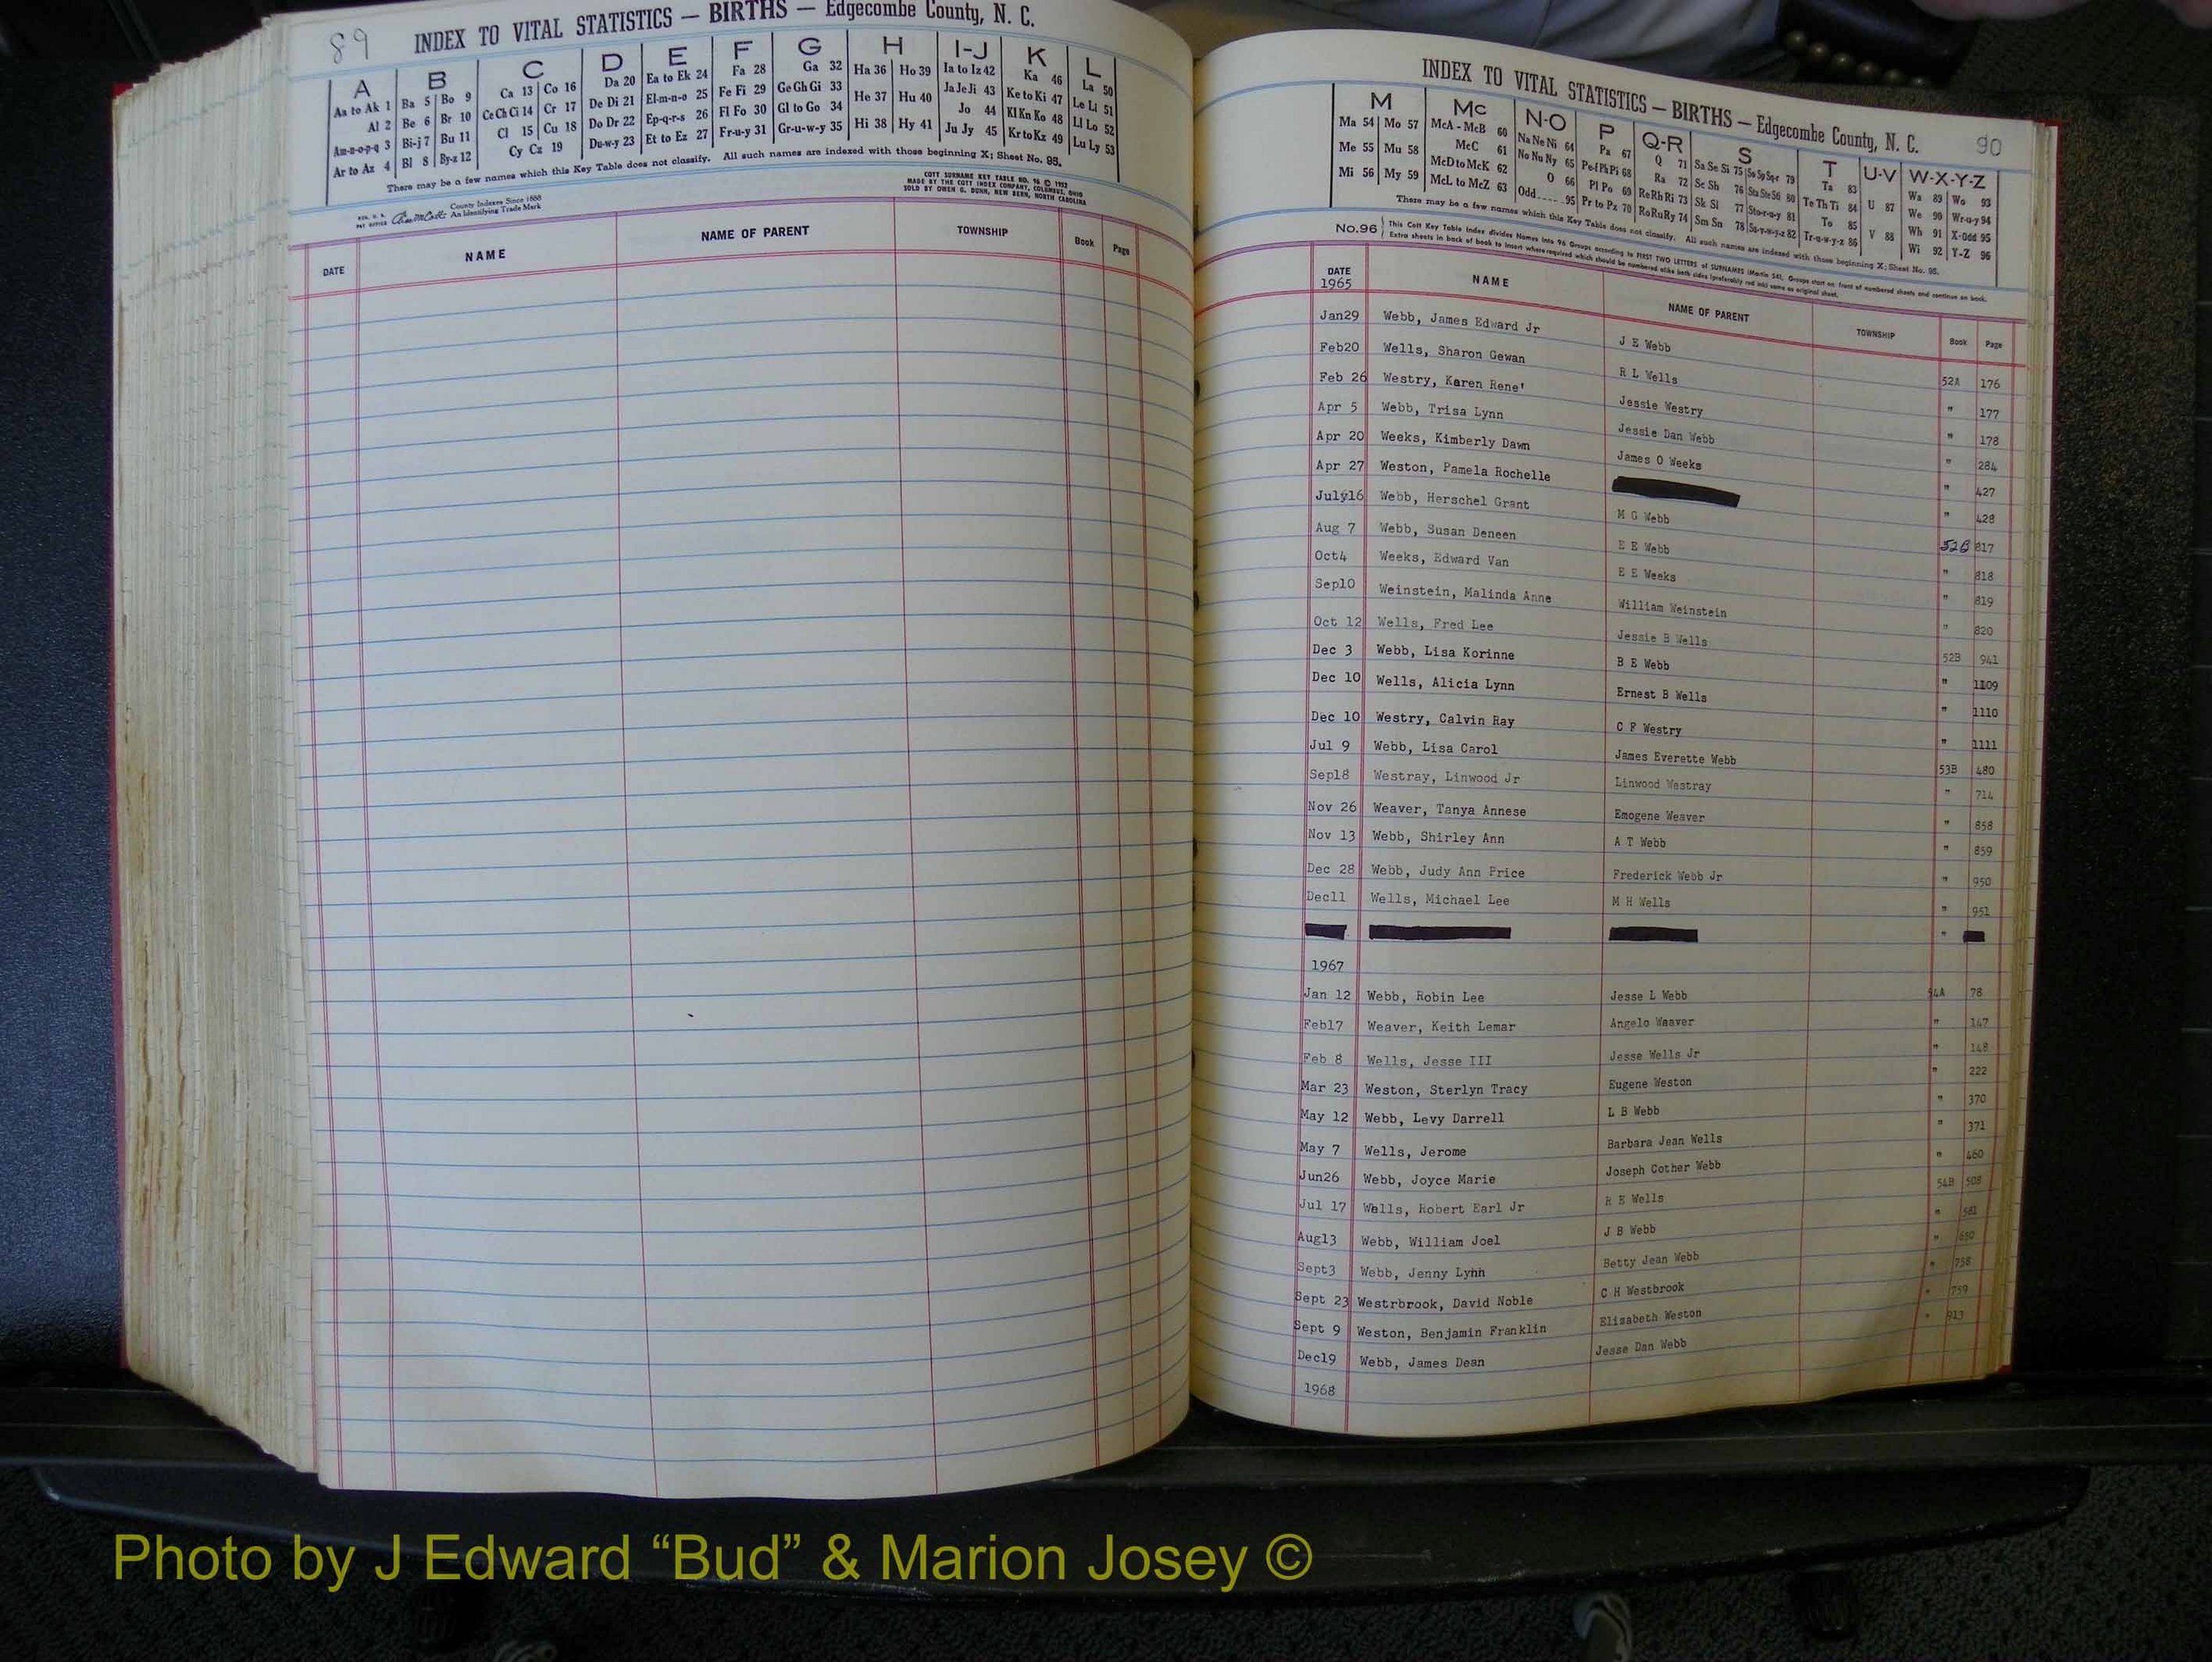 89
INDEX TO VITAL STATISTICS — BIRTHS — Edgecombe County, N. C.
A B C D E F G H I-J K L
Aa to Ak 1 Ba 5 Bo 9 Ca 13 Co 16 Da 20 Ea to Ek 24 Fa 28 Ga 32 Ha 36 Ho 39 Ia to Iz 42 Ka 46 La 50
Al 2 Be 6 Br 10 Ce Ch Ci 14 Cr 17 De Di 21 El-m-n-o 25 Fe Fi 29 Ge Gh Gi 33 He 37 Hu 40 Ja Je Ji 43 Ke to Ki 47 Le Li 51
Am-n-o-p-q 3 Bi-j 7 Bu 11 Cl 15 Cu 18 Do Dr 22 Ep-q-r-s 26 Fl Fo 30 Gl to Go 34 Hi 38 Hy 41 Jo 44 Kl Kn Ko 48 Ll Lo 52
Ar to Az 4 Bl 8 By-z 12 Cy Cz 19 Du-w-y 23 Et to Ez 27 Fr-u-y 31 Gr-u-w-y 35 Ju Jy 45 Kr to Kz 49 Lu Ly 53
There may be a few names which this Key Table does not classify. All such names are indexed with those beginning X; Sheet No. 95.
County Indexes Since 1888
An Identifying Trade Mark
COTT SURNAME KEY TABLE NO. 96 © 1952
MADE BY THE COTT INDEX COMPANY, COLUMBUS, OHIO
SOLD BY OWEN G. DUNN, NEW BERN, NORTH CAROLINA
DATE NAME NAME OF PARENT TOWNSHIP Book Page
90
INDEX TO VITAL STATISTICS — BIRTHS — Edgecombe County, N. C.
M Mc N-O P Q-R S T U-V W-X-Y-Z
Ma 54 Mo 57 McA - McB 60 Na Ne Ni 64 Pa 67 Q 71 Sa Se Si 75 So Sp Sq-r 79 Ta 83 U 87 Wa 89 Wo 93
Me 55 Mu 58 McC 61 No Nu Ny 65 Pe-f Ph Pi 68 Ra 72 Sc Sh 76 Sta Ste Sti 80 Te Th Ti 84 V 88 We 90 Wr-u-y 94
Mi 56 My 59 McD to McK 62 O 66 Pl Po 69 Re Rh Ri 73 Sk Sl 77 Sto-r-u-y 81 To 85 Wh 91 X-Odd 95
McL to McZ 63 Odd 95 Pr to Pz 70 Ro Ru Ry 74 Sm Sn 78 Su-v-w-y-z 82 Tr-u-w-y-z 86 Wi 92 Y-Z 96
There may be a few names which this Key Table does not classify. All such names are indexed with those beginning X; Sheet No. 95.
No.96 This Cott Key Table Index divides Names into 96 Groups according to FIRST TWO LETTERS of SURNAMES (Martin 54). Groups start on front of numbered sheets and continue on back.
Extra sheets in back of book to insert where required which should be numbered alike both sides (preferably red ink) same as original sheet.
DATE NAME NAME OF PARENT TOWNSHIP Book Page
1965
Jan29 Webb, James Edward Jr J E Webb 52A 176
Feb20 Wells, Sharon Gewan R L Wells " 177
Feb 26 Westry, Karen Rene' Jessie Westry " 178
Apr 5 Webb, Trisa Lynn Jessie Dan Webb " 284
Apr 20 Weeks, Kimberly Dawn James O Weeks " 427
Apr 27 Weston, Pamela Rochelle " 428
July16 Webb, Herschel Grant M G Webb 52B 817
Aug 7 Webb, Susan Deneen E E Webb " 818
Oct4 Weeks, Edward Van E E Weeks " 819
Sep10 Weinstein, Malinda Anne William Weinstein " 820
Oct 12 Wells, Fred Lee Jessie B Wells 52B 941
Dec 3 Webb, Lisa Korinne B E Webb " 1109
Dec 10 Wells, Alicia Lynn Ernest B Wells " 1110
Dec 10 Westry, Calvin Ray C F Westry " 1111
Jul 9 Webb, Lisa Carol James Everette Webb 53B 480
Sep18 Westray, Linwood Jr Linwood Westray " 714
Nov 26 Weaver, Tanya Annese Emogene Weaver " 858
Nov 13 Webb, Shirley Ann A T Webb " 859
Dec 28 Webb, Judy Ann Price Frederick Webb Jr " 950
Dec11 Wells, Michael Lee M H Wells " 951
"
1967
Jan 12 Webb, Robin Lee Jesse L Webb 54A 78
Feb17 Weaver, Keith Lemar Angelo Weaver " 147
Feb 8 Wells, Jesse III Jesse Wells Jr " 148
Mar 23 Weston, Sterlyn Tracy Eugene Weston " 222
May 12 Webb, Levy Darrell L B Webb " 370
May 7 Wells, Jerome Barbara Jean Wells " 371
Jun26 Webb, Joyce Marie Joseph Cother Webb " 460
Jul 17 Wells, Robert Earl Jr R E Wells 54B 508
Aug13 Webb, William Joel J B Webb " 581
Sept3 Webb, Jenny Lynn Betty Jean Webb " 650
Sept 23 Westrbrook, David Noble C H Westbrook " 758
Sept 9 Weston, Benjamin Franklin Elizabeth Weston " 759
Dec19 Webb, James Dean Jesse Dan Webb " 913
1968
Photo by J Edward “Bud” & Marion Josey ©